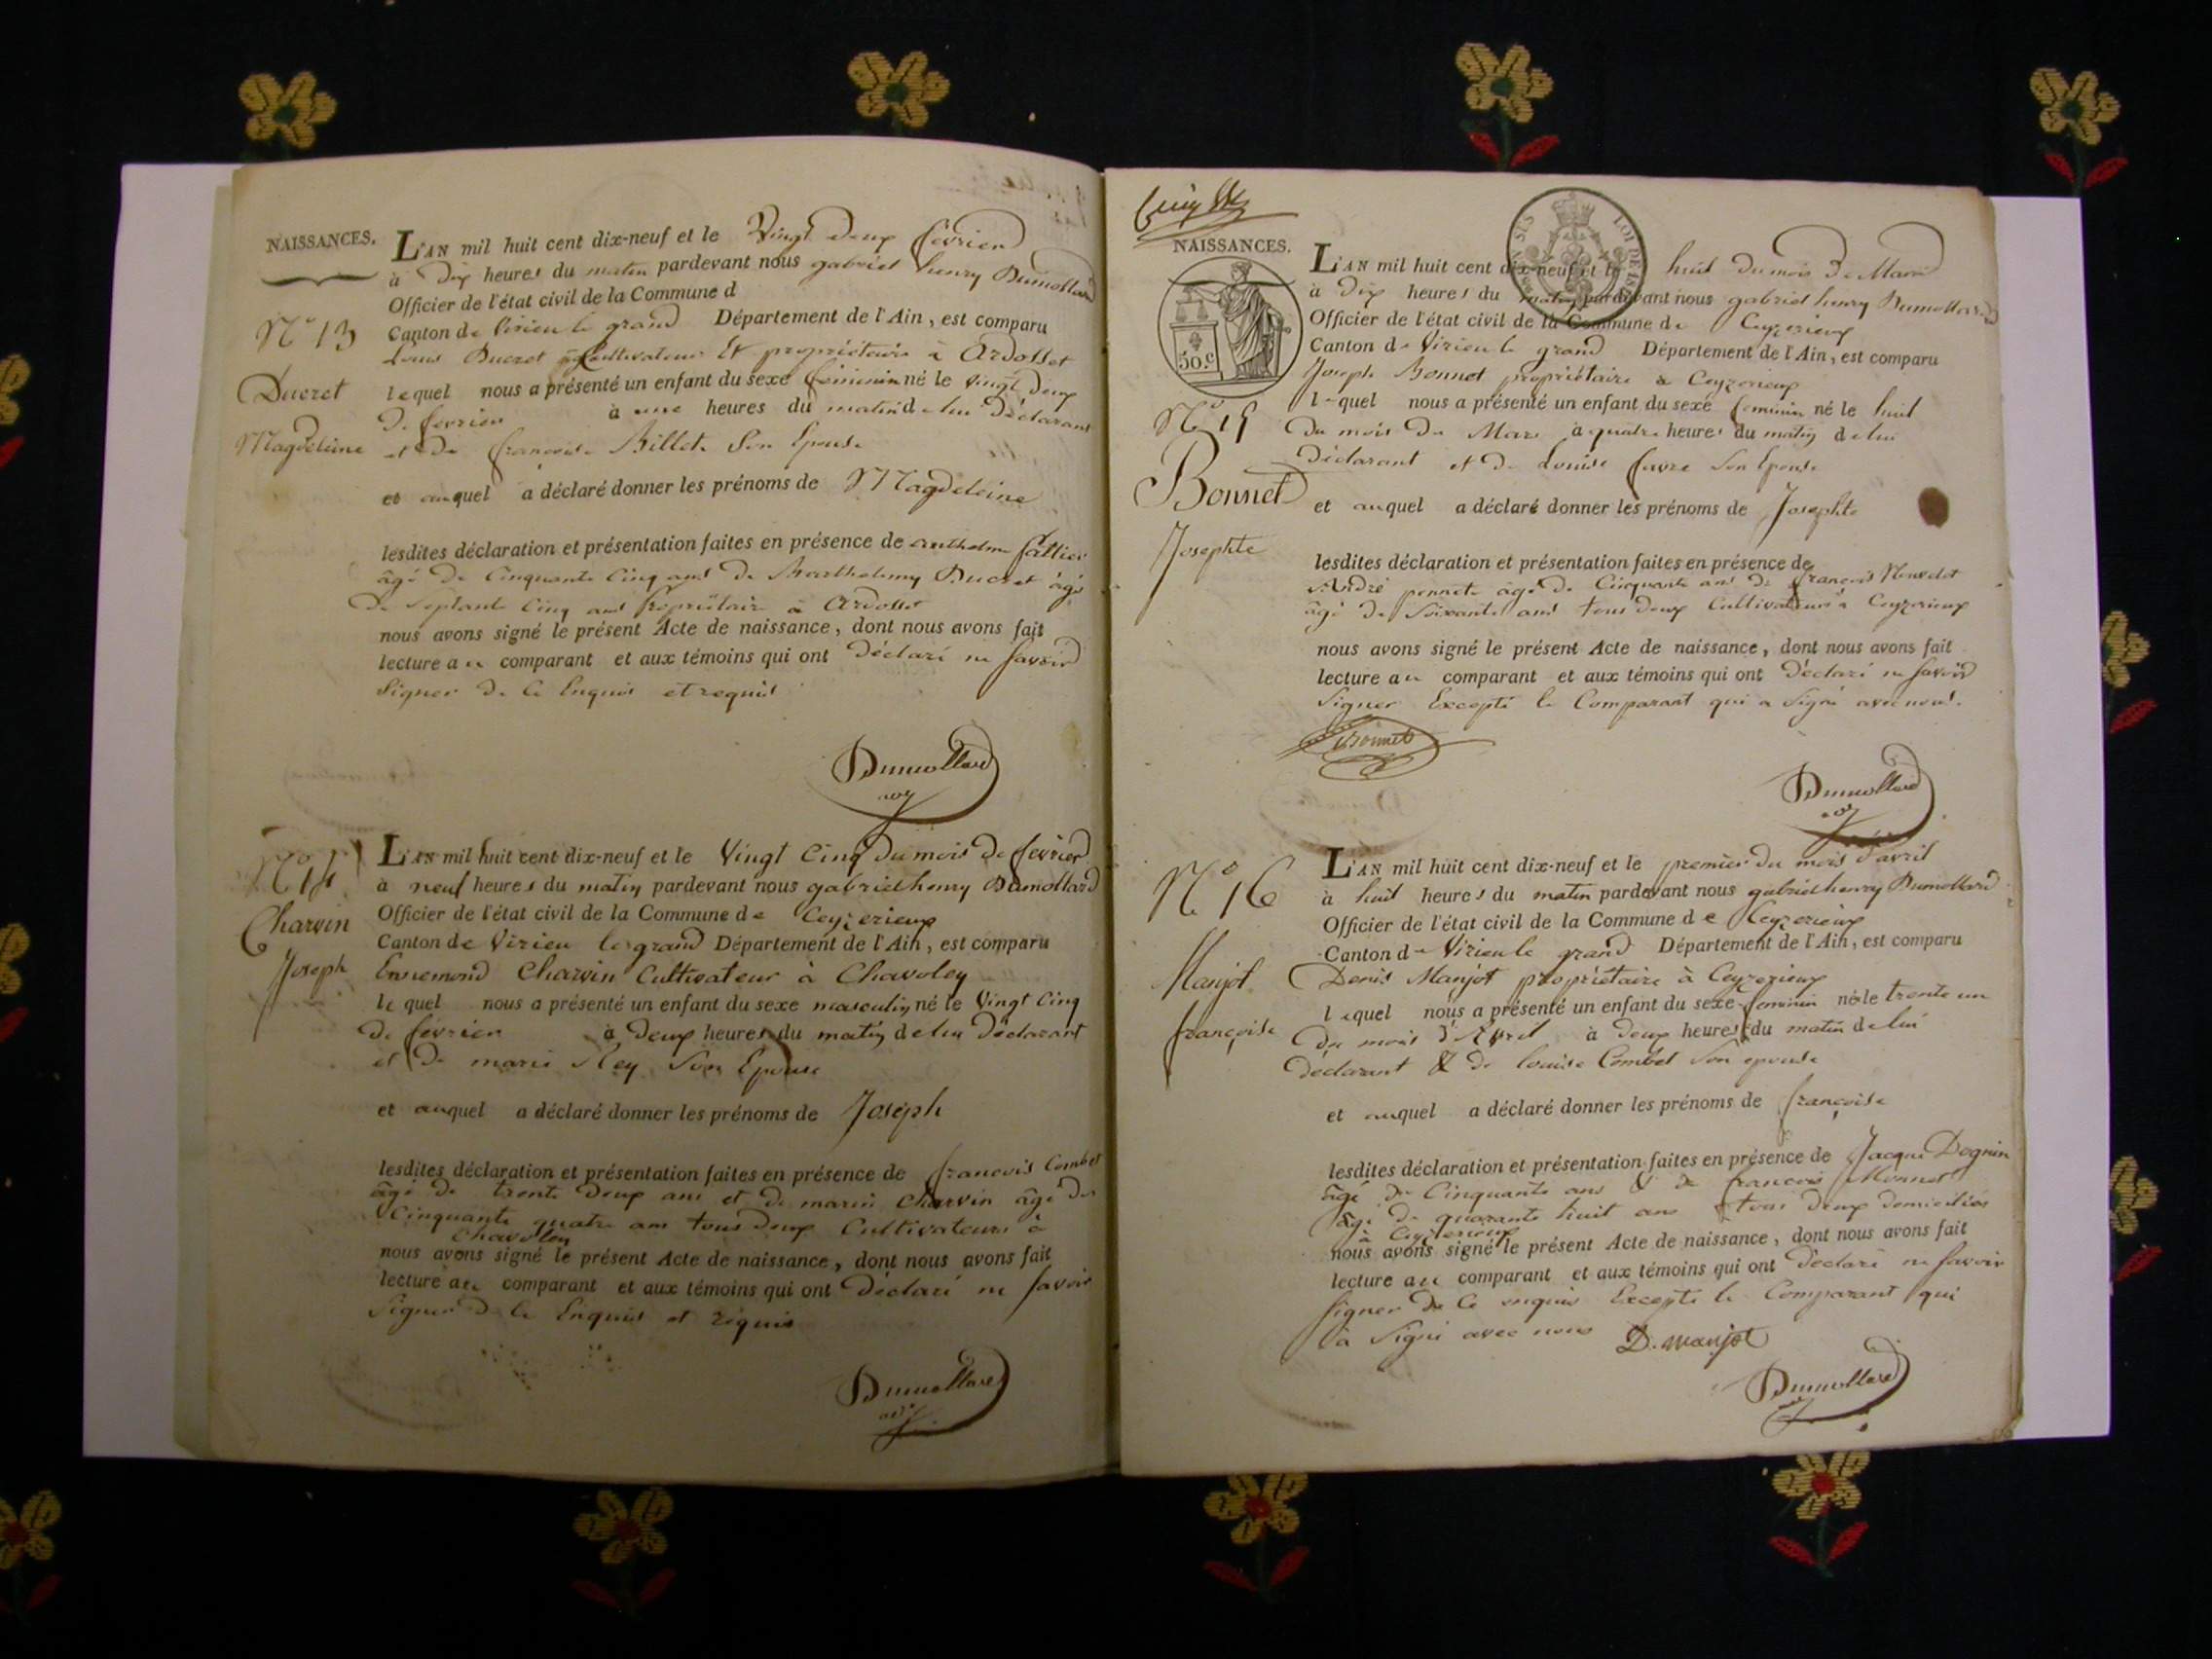 NAISSANCES.
L'AN mil huit cent dix-neuf et le Vingt deux fevrier
à dix heures du matin pardevant nous gabriel henry Dumollard
Officier de l'état civil de la Commune d
Canton de Virieu le grand Département de l'Ain, est comparu
Louis Ducret cultivateur Et propriétaire à Ardosset
N° 13
Ducret
Magdeleine
lequel nous a présenté un enfant du sexe féminin né le vingt deux
de fevrier à une heures du matin de lui Déclarant
et de francoise Billet Son Epouse
et auquel a déclaré donner les prénoms de Magdeleine
lesdites déclaration et présentation faites en présence de anthelme
âgé de Cinquante Cinq ans de Barthelemy Ducret âgé
de Septante Cinq ans propriétaire à Ardosset
nous avons signé le présent Acte de naissance, dont nous avons fait
lecture au comparant et aux témoins qui ont Déclaré ne savoir
Signer de Ce Enquis et requis
Dumollard
N° 14
Charvin
Joseph
L'AN mil huit cent dix-neuf et le Vingt Cinq du mois de fevrier
à neuf heures du matin pardevant nous gabriel henry Dumollard
Officier de l'état civil de la Commune de Ceyzerieux
Canton de Virieu le grand Département de l'Ain, est comparu
Ennemond Charvin Cultivateur à Chavoley
le quel nous a présenté un enfant du sexe masculin né le Vingt Cinq
de février à deux heures du matin de lui Déclarant
et De marie Rey Son Epouse
et auquel a déclaré donner les prénoms de Joseph
lesdites déclaration et présentation faites en présence de francois Combet
âgé de trente deux ans et de marin Charvin âgé de
Cinquante quatre ans tous deux Cultivateurs à
Chavoley
nous avons signé le présent Acte de naissance, dont nous avons fait
lecture au comparant et aux témoins qui ont Déclaré ne savoir
Signer de Ce Enquis et requis
Dumollard
NAISSANCES.
50.c
L'AN mil huit cent dix-neuf et le huit du mois De Mars
à Dix heures du matin pardevant nous gabriel henry Dumollard
Officier de l'état civil de la Commune de Ceyzerieux
Canton de Virieu le grand Département de l'Ain, est comparu
Joseph Bonnet propriétaire à Ceyzerieux
N° 15
Bonnet
Josephte
l equel nous a présenté un enfant du sexe feminin né le huit
du mois De Mars à quatre heures du matin de lui
Déclarant et De Louise favre Son Epouse
et auquel a déclaré donner les prénoms de Josephte
lesdites déclaration et présentation faites en présence de
André âgé de Cinquante ans de francois
âgé de Soixante ans tous deux Cultivateurs à Ceyzerieux
nous avons signé le présent Acte de naissance, dont nous avons fait
lecture au comparant et aux témoins qui ont déclaré ne savoir
Signer Excepté le Comparant qui a Signé avec nous.
Bonnet
Dumollard
N° 16
Manjot
françoise
L'AN mil huit cent dix-neuf et le premier du mois d'avril
à huit heures du matin pardevant nous gabriel henry Dumollard
Officier de l'état civil de la Commune de Ceyzerieux
Canton de Virieu le grand Département de l'Ain, est comparu
Denis Manjot propriétaire à Ceyzerieux
l equel nous a présenté un enfant du sexe feminin né le trente un
du mois d'Avril à deux heures du matin de lui
déclarant & de louise Combet Son epouse
et auquel a déclaré donner les prénoms de françoise
lesdites déclaration et présentation faites en présence de Jacque Dognin
âgé de Cinquante ans & de francois Monnet
âgé de quarante huit ans tous deux domiciliés
à Ceyzerieux
nous avons signé le présent Acte de naissance, dont nous avons fait
lecture au comparant et aux témoins qui ont déclaré ne savoir
signer de Ce enquis Excepté le Comparant qui
à Signé avec nous D. manjot
Dumollard